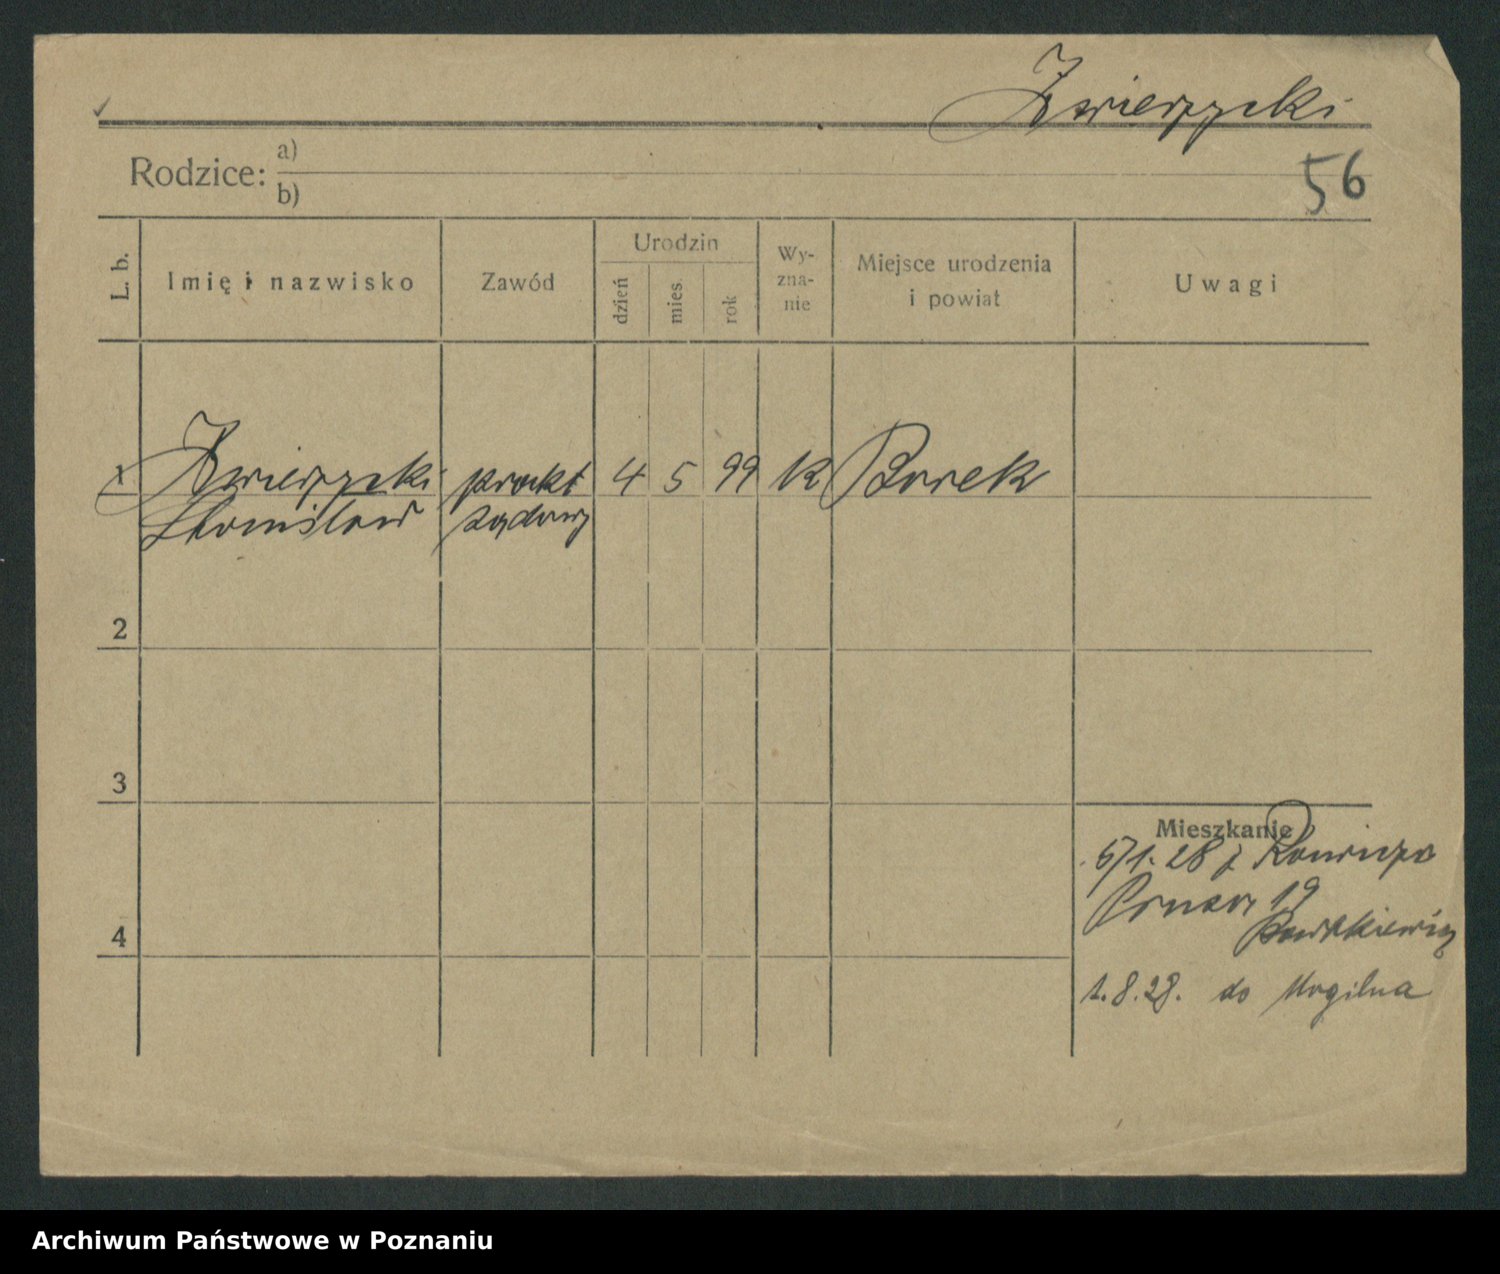 Zwierzycki
Rodzice: a)
b)
56
L. b.
Imię i nazwisko
Zawód
Urodzin
dzień
mies.
rok
Wy-
zna-
nie
Miejsce urodzenia
i powiat
Uwagi
1 Zwierzycki prakt 4 5 99 k Borek
Stanisław sądowy
2
3
4
Mieszkanie
5/1. 28 z Rawicza
19
1.8.28. do Mogilna
Archiwum Państwowe w Poznaniu